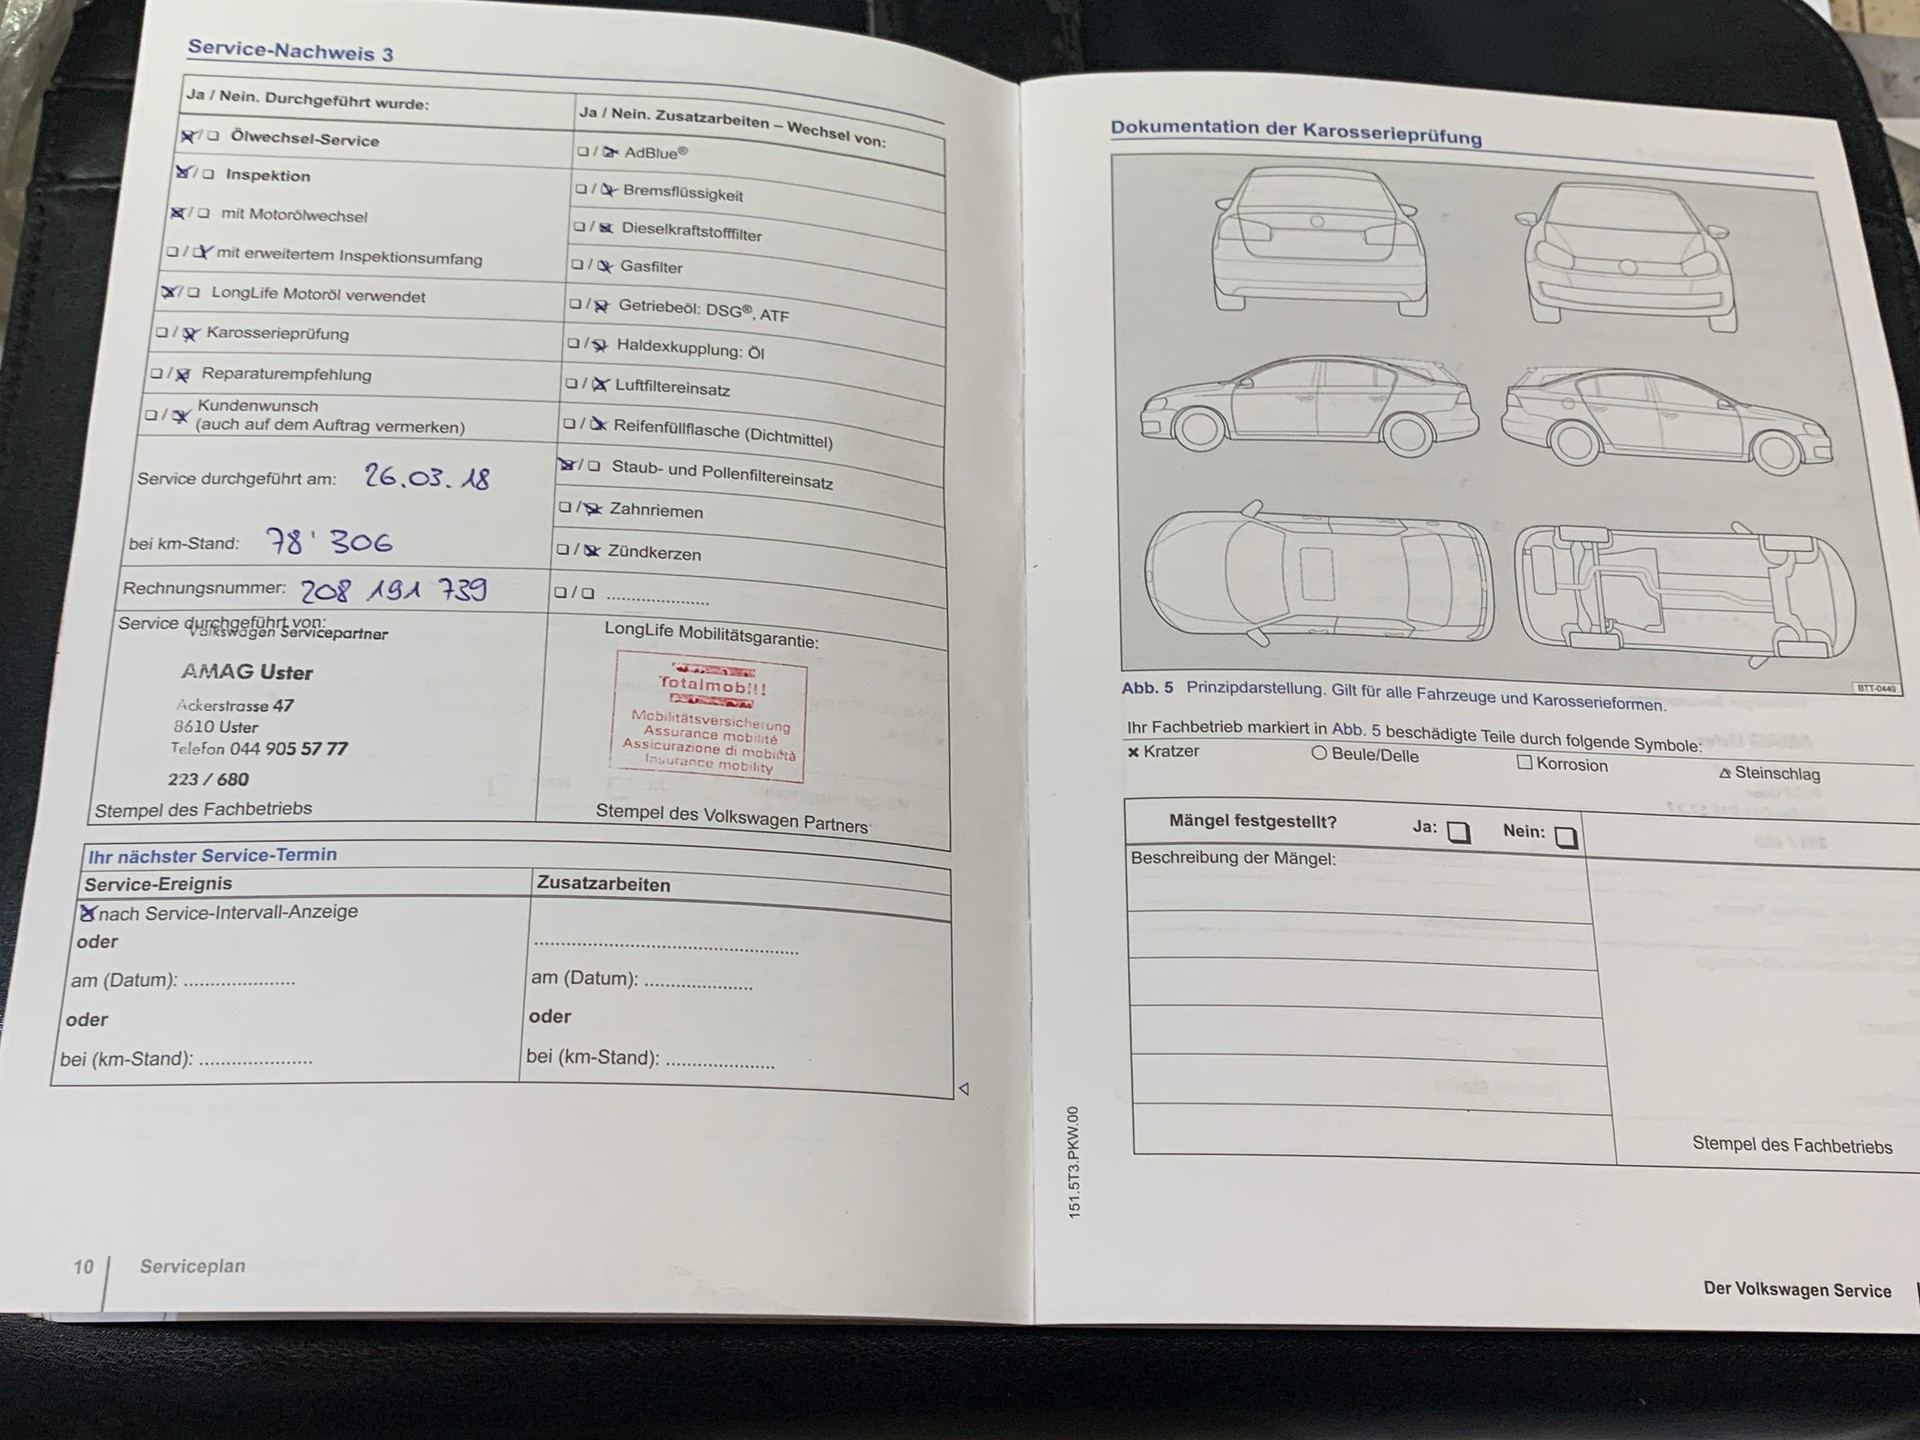 Service-Nachweis 3
Ja / Nein. Durchgeführt wurde:
☒/☐ Ölwechsel-Service
☒/☐ Inspektion
☒/☐ mit Motorölwechsel
☐/☒ mit erweitertem Inspektionsumfang
☒/☐ LongLife Motoröl verwendet
☐/☒ Karosserieprüfung
☐/☒ Reparaturempfehlung
☐/☒ Kundenwunsch
(auch auf dem Auftrag vermerken)
Service durchgeführt am: 26.03.18
bei km-Stand: 78'306
Rechnungsnummer: 208 191 739
Service durchgeführt von:
Volkswagen Servicepartner
AMAG Uster
Ackerstrasse 47
8610 Uster
Telefon 044 905 57 77
223 / 680
Stempel des Fachbetriebs
Ja / Nein. Zusatzarbeiten – Wechsel von:
☐/☒ AdBlue®
☐/☒ Bremsflüssigkeit
☐/☒ Dieselkraftstofffilter
☐/☒ Gasfilter
☐/☒ Getriebeöl: DSG®, ATF
☐/☒ Haldexkupplung: Öl
☐/☒ Luftfiltereinsatz
☐/☒ Reifenfüllflasche (Dichtmittel)
☒/☐ Staub- und Pollenfiltereinsatz
☐/☒ Zahnriemen
☐/☒ Zündkerzen
☐/☐ .....................
LongLife Mobilitätsgarantie:
Totalmobil!
Mobilitätsversicherung
Assurance mobilité
Assicurazione di mobilità
Insurance mobility
Stempel des Volkswagen Partners
Ihr nächster Service-Termin
Service-Ereignis
☒ nach Service-Intervall-Anzeige
oder
am (Datum): .....................
oder
bei (km-Stand): .....................
Zusatzarbeiten
..................................................
am (Datum): .....................
oder
bei (km-Stand): .....................
10 Serviceplan
Dokumentation der Karosserieprüfung
BTT-0449
Abb. 5 Prinzipdarstellung. Gilt für alle Fahrzeuge und Karosserieformen.
Ihr Fachbetrieb markiert in Abb. 5 beschädigte Teile durch folgende Symbole:
× Kratzer ○ Beule/Delle □ Korrosion △ Steinschlag
Mängel festgestellt? Ja: ☐ Nein: ☐
Beschreibung der Mängel:
Stempel des Fachbetriebs
151.5T3.PKW.00
Der Volkswagen Service